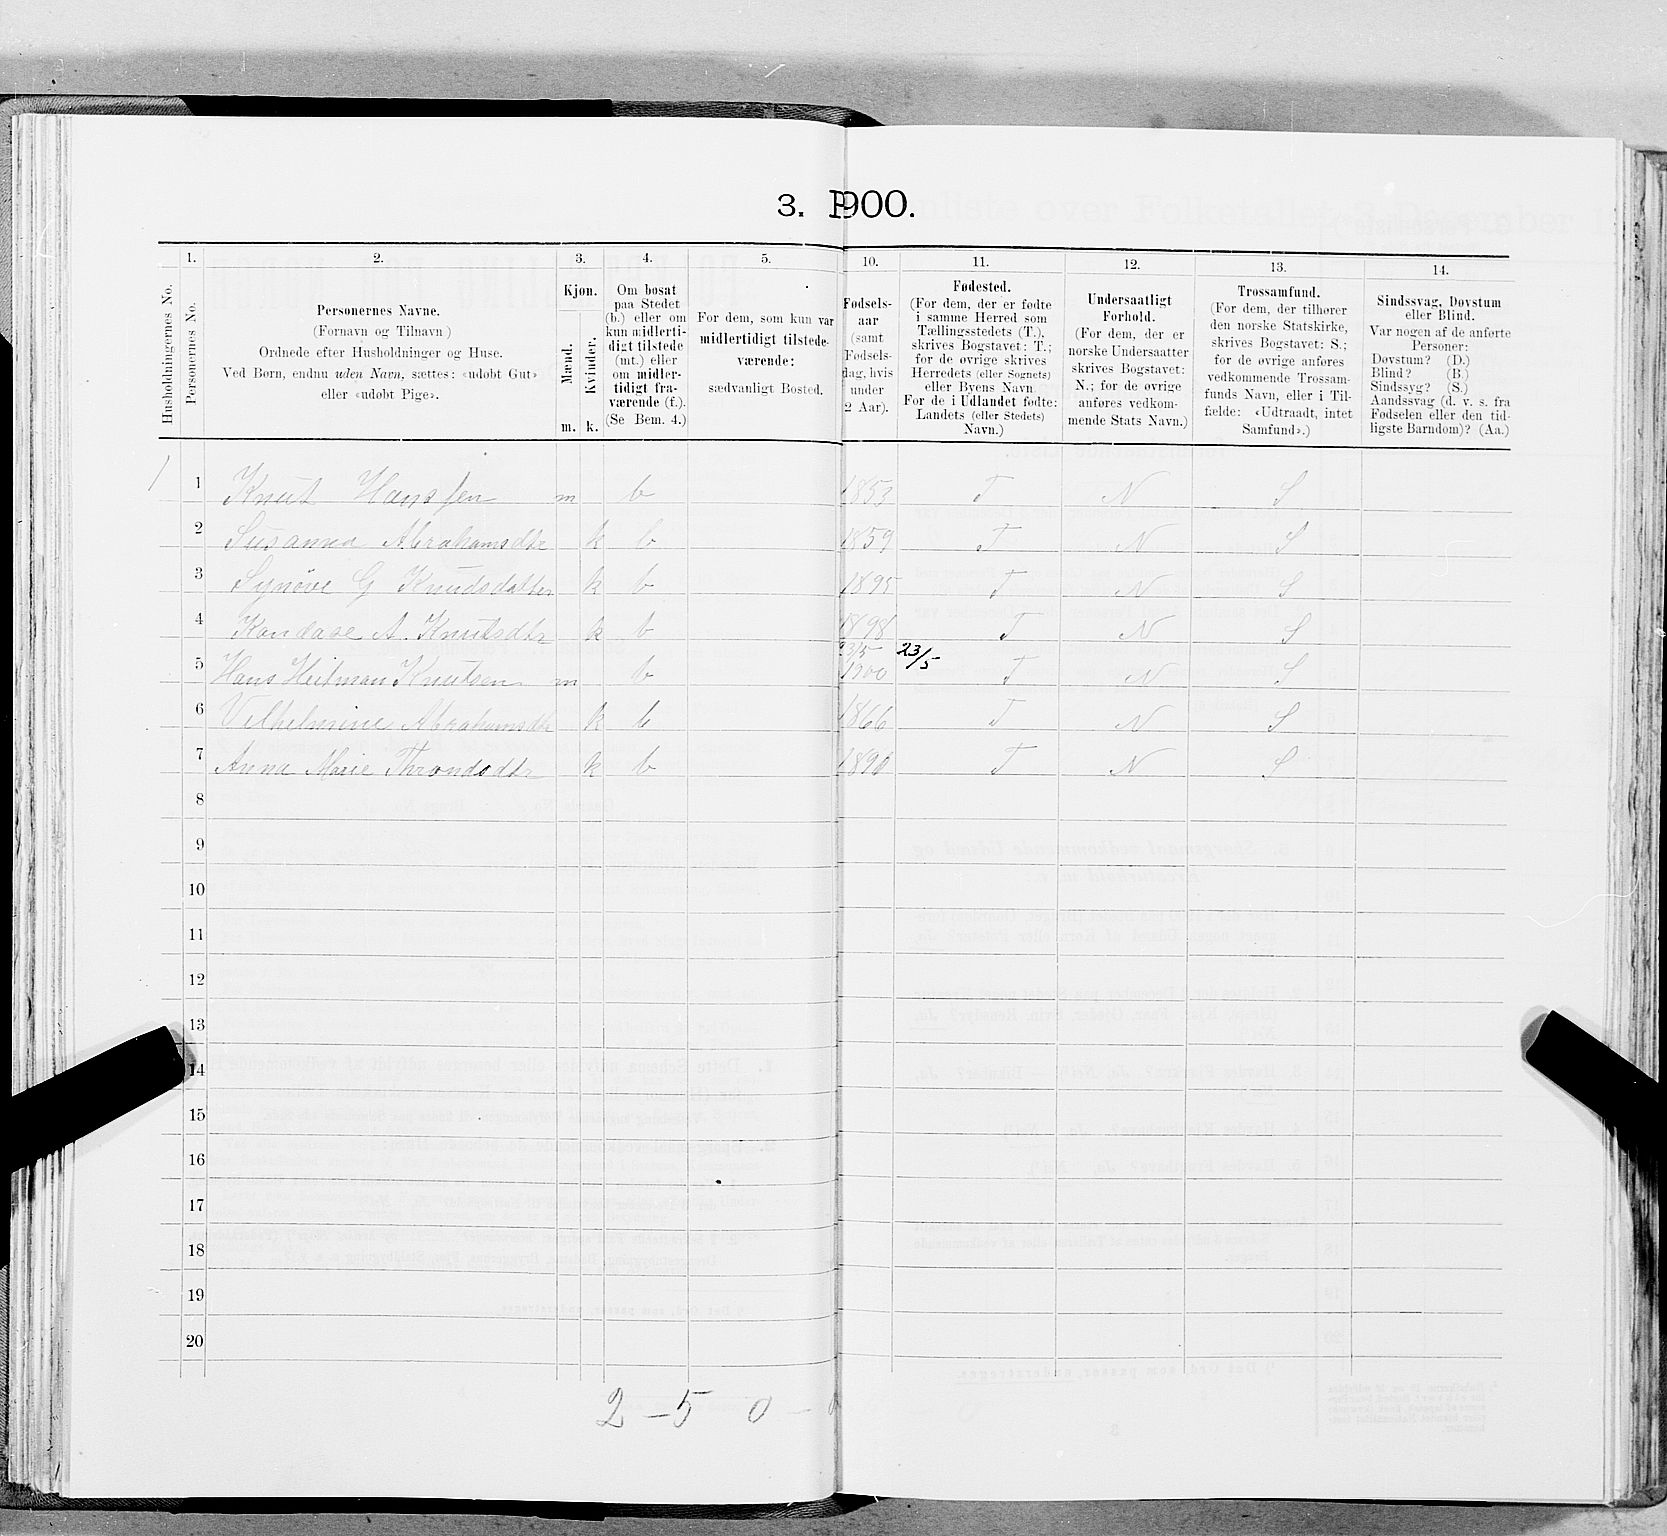 3. P900.
1. 2. 3. 4. 5. 10. 11. 12. 13. 14.
Husholdningernes No.
Personernes No.
Personernes Navne.
(Fornavn og Tilnavn)
Ordnede efter Husholdninger og Huse.
Ved Børn, endnu uden Navn, sættes: «udøbt Gut»
eller «udøbt Pige».
Kjøn.
Mænd.
Kvinder.
m. k.
Om bosat
paa Stedet
(b.) eller om
kun midlerti-
digt tilstede
(mt.) eller
om midler-
tidigt fra-
værende (f.).
(Se Bem. 4.)
For dem, som kun var
midlertidigt tilstede-
værende:
sædvanligt Bosted.
Fødsels-
aar
(samt
Fødsels-
dag, hvis
under
2 Aar).
Fødested.
(For dem, der er fødte
i samme Herred som
Tællingsstedets (T.),
skrives Bogstavet: T.;
for de øvrige skrives
Herredets (eller Sognets)
eller Byens Navn.
For de i Udlandet fødte:
Landets (eller Stedets)
Navn.)
Undersaatligt
Forhold.
(For dem, der er
norske Undersaatter
skrives Bogstavet:
N.; for de øvrige
anføres vedkom-
mende Stats Navn.)
Trossamfund.
(For dem, der tilhører
den norske Statskirke,
skrives Bogstavet: S.;
for de øvrige anføres
vedkommende Trossam-
funds Navn, eller i Til-
fælde: «Udtraadt, intet
Samfund».)
Sindssvag, Døvstum
eller Blind.
Var nogen af de anførte
Personer:
Døvstum? (D.)
Blind? (B.)
Sindssyg? (S.)
Aandssvag (d. v. s. fra
Fødselen eller den tid-
ligste Barndom)? (Aa.)
1 1 Knut Hanssen m b 1853 T N S
2 Susanna Abrahamsdtr k b 1859 T N S
3 Synöve G Knudsdatter k b 1895 T N S
4 Kandase A. Knutsdtr k b 1898 T N S
23/5 23/5
5 Hans Heitman Knutsen m b 1900 T N S
6 Vilhelmine Abrahamsdtr k b 1866 T N S
7 Anna Marie Throndsdtr k b 1890 T N S
8
9
10
11
12
13
14
15
16
17
18
19
20
2 – 5 0 – 0